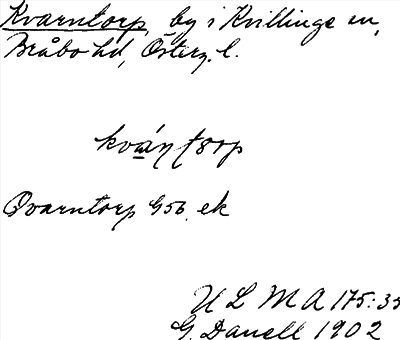 Kvarntorp, by i Kvillinge sn,
Bråbo hd, Österg. l.
kvántorp
Qvarntorp G56. ek
ULMA 175:35
G. Danell 1902